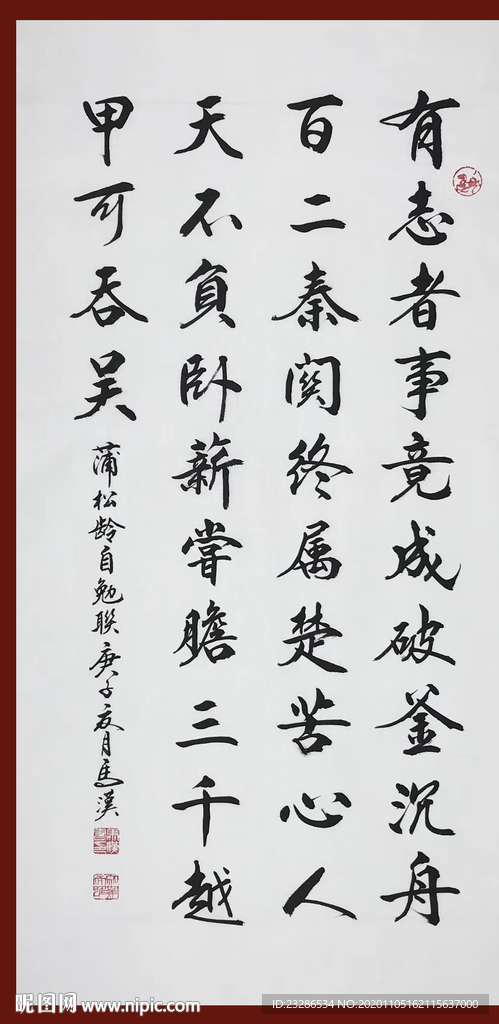 有志者事竟成破釜沉舟
百二秦関终属楚苦心人
天不負卧薪嘗膽三千越
甲可吞吴
蒲松龄自勉联庚子夏月馬漢
昵图网 www.nipic.com
ID:23286534 NO:20201105162115637000